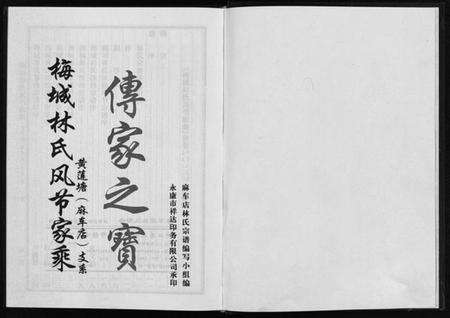 麻车店林氏宗谱编写小组编
永康市祥达印务有限公司承印
傳家之寶
黄蓮塘（麻车店）支系
梅城林氏风节家乘